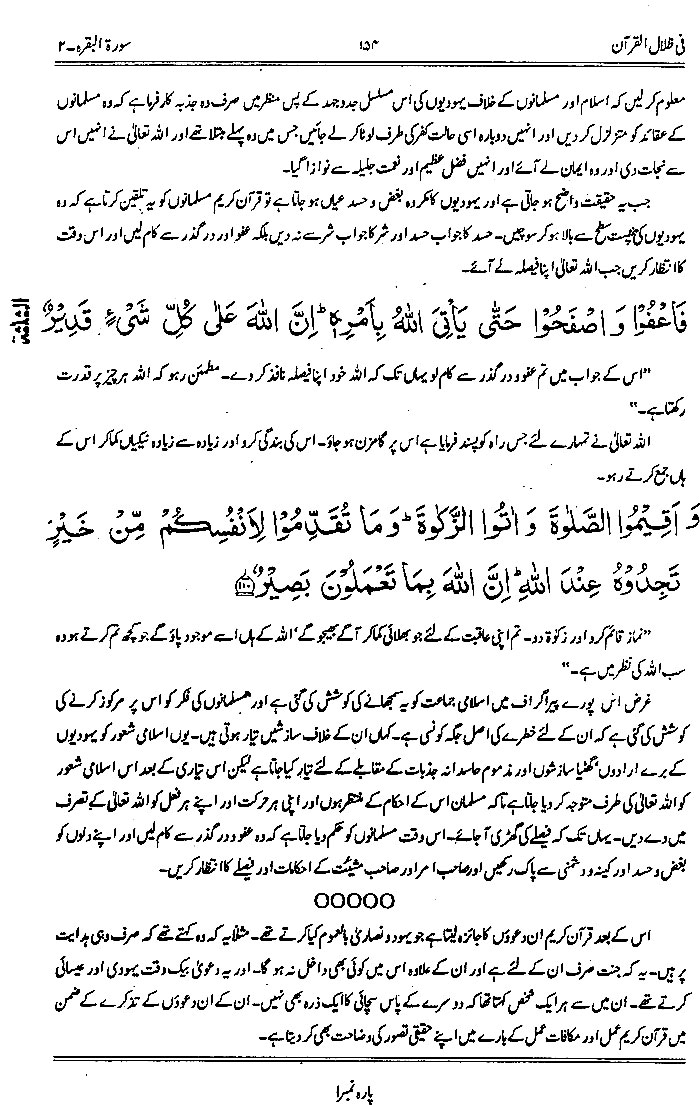 فی ظلال القرآن ۱۵۴ سورۃ البقرہ۔۲
معلوم کر لیں کہ اسلام اور مسلمانوں کے خلاف یہودیوں کی اس مسلسل جدوجہد کے پس منظر میں صرف وہ جذبہ کار فرما ہے کہ وہ مسلمانوں
کے عقائد کو متزلزل کر دیں اور انہیں دوبارہ اسی حالت کفر کی طرف لوٹا کر لے جائیں جس میں وہ پہلے مبتلا تھے اور اللہ تعالیٰ نے انہیں اس
سے نجات دی اور وہ ایمان لے آئے اور انہیں فضل عظیم اور نعمت جلیلہ سے نوازا گیا۔
جب یہ حقیقت واضح ہو جاتی ہے اور یہودیوں کا مکروہ بغض و حسد عیاں ہو جاتا ہے تو قرآن کریم مسلمانوں کو یہ تلقین کرتا ہے کہ وہ
یہودیوں کی پست سطح سے بالا ہو کر سوچیں۔ حسد کا جواب حسد اور شر کا جواب شر سے نہ دیں بلکہ عفو اور درگذر سے کام لیں اور اس وقت
کا انتظار کریں جب اللہ تعالیٰ اپنا فیصلہ لے آئے۔
فَاعْفُوْا وَ اصْفَحُوْا حَتّٰى يَاْتِيَ اللّٰهُ بِاَمْرِهٖ ؕ اِنَّ اللّٰهَ عَلٰى كُلِّ شَيْءٍ قَدِيْرٌ
"اس کے جواب میں تم عفو و درگذر سے کام لو یہاں تک کہ اللہ خود اپنا فیصلہ نافذ کر دے۔ مطمئن رہو کہ اللہ ہر چیز پر قدرت
رکھتا ہے۔"
اللہ تعالیٰ نے تمہارے لئے جس راہ کو پسند فرمایا ہے اس پر گامزن ہو جاؤ۔ اس کی بندگی کرو اور زیادہ سے زیادہ نیکیاں کما کر اس کے
ہاں جمع کرتے رہو۔
وَ اَقِيْمُوا الصَّلٰوةَ وَ اٰتُوا الزَّكٰوةَ ؕ وَ مَا تُقَدِّمُوْا لِاَنْفُسِكُمْ مِّنْ خَيْرٍ
تَجِدُوْهُ عِنْدَ اللّٰهِ ؕ اِنَّ اللّٰهَ بِمَا تَعْمَلُوْنَ بَصِيْرٌ ﴿۱۱۰﴾
"نماز قائم کرو اور زکوٰۃ دو۔ تم اپنی عاقبت کے لئے جو بھلائی کما کر آگے بھیجو گے' اللہ کے ہاں اسے موجود پاؤ گے جو کچھ تم کرتے ہو وہ
سب اللہ کی نظر میں ہے۔"
غرض اس پورے پیراگراف میں اسلامی جماعت کو یہ سمجھانے کی کوشش کی گئی ہے اور مسلمانوں کی فکر کو اس پر مرکوز کرنے کی
کوشش کی گئی ہے کہ ان کے لئے خطرے کی اصل جگہ کونسی ہے۔ کہاں ان کے خلاف سازشیں تیار ہوتی ہیں۔ یوں اسلامی شعور کو یہودیوں
کے برے ارادوں' گھٹیا سازشوں اور مذموم حاسدانہ جذبات کے مقابلے کے لئے تیار کیا جاتا ہے لیکن اس تیاری کے بعد اس اسلامی شعور
کو اللہ تعالیٰ کی طرف متوجہ کر دیا جاتا ہے تاکہ مسلمان اس کے احکام کے منتظر ہوں اور اپنی ہر حرکت اور اپنے ہر فعل کو اللہ تعالیٰ کے تصرف
میں دے دیں۔ یہاں تک کہ فیصلے کی گھڑی آ جائے۔ اس وقت مسلمانوں کو حکم دیا جاتا ہے کہ وہ عفو و درگذر سے کام لیں اور اپنے دلوں کو
بغض و حسد اور کینہ و دشمنی سے پاک رکھیں اور صاحب امر اور صاحب مشیئت کے احکامات اور فیصلے کا انتظار کریں۔
○○○○○
اس کے بعد قرآن کریم ان دعوؤں کا جائزہ لیتا ہے جو یہود و نصاریٰ بالعموم کیا کرتے تھے۔ مثلاً یہ کہ وہ کہتے تھے کہ صرف وہی ہدایت
پر ہیں۔ یہ کہ جنت صرف ان کے لئے ہے اور ان کے علاوہ اس میں کوئی بھی داخل نہ ہو گا۔ اور یہ دعویٰ بیک وقت یہودی اور عیسائی
کرتے تھے۔ ان میں سے ہر ایک شخص کہتا تھا کہ دوسرے کے پاس سچائی کا ایک ذرہ بھی نہیں۔ ان کے ان دعوؤں کے تذکرے کے ضمن
میں قرآن کریم عمل اور مکافات عمل کے بارے میں اپنے حقیقی تصور کی وضاحت بھی کر دیتا ہے۔
پارہ نمبر ۱